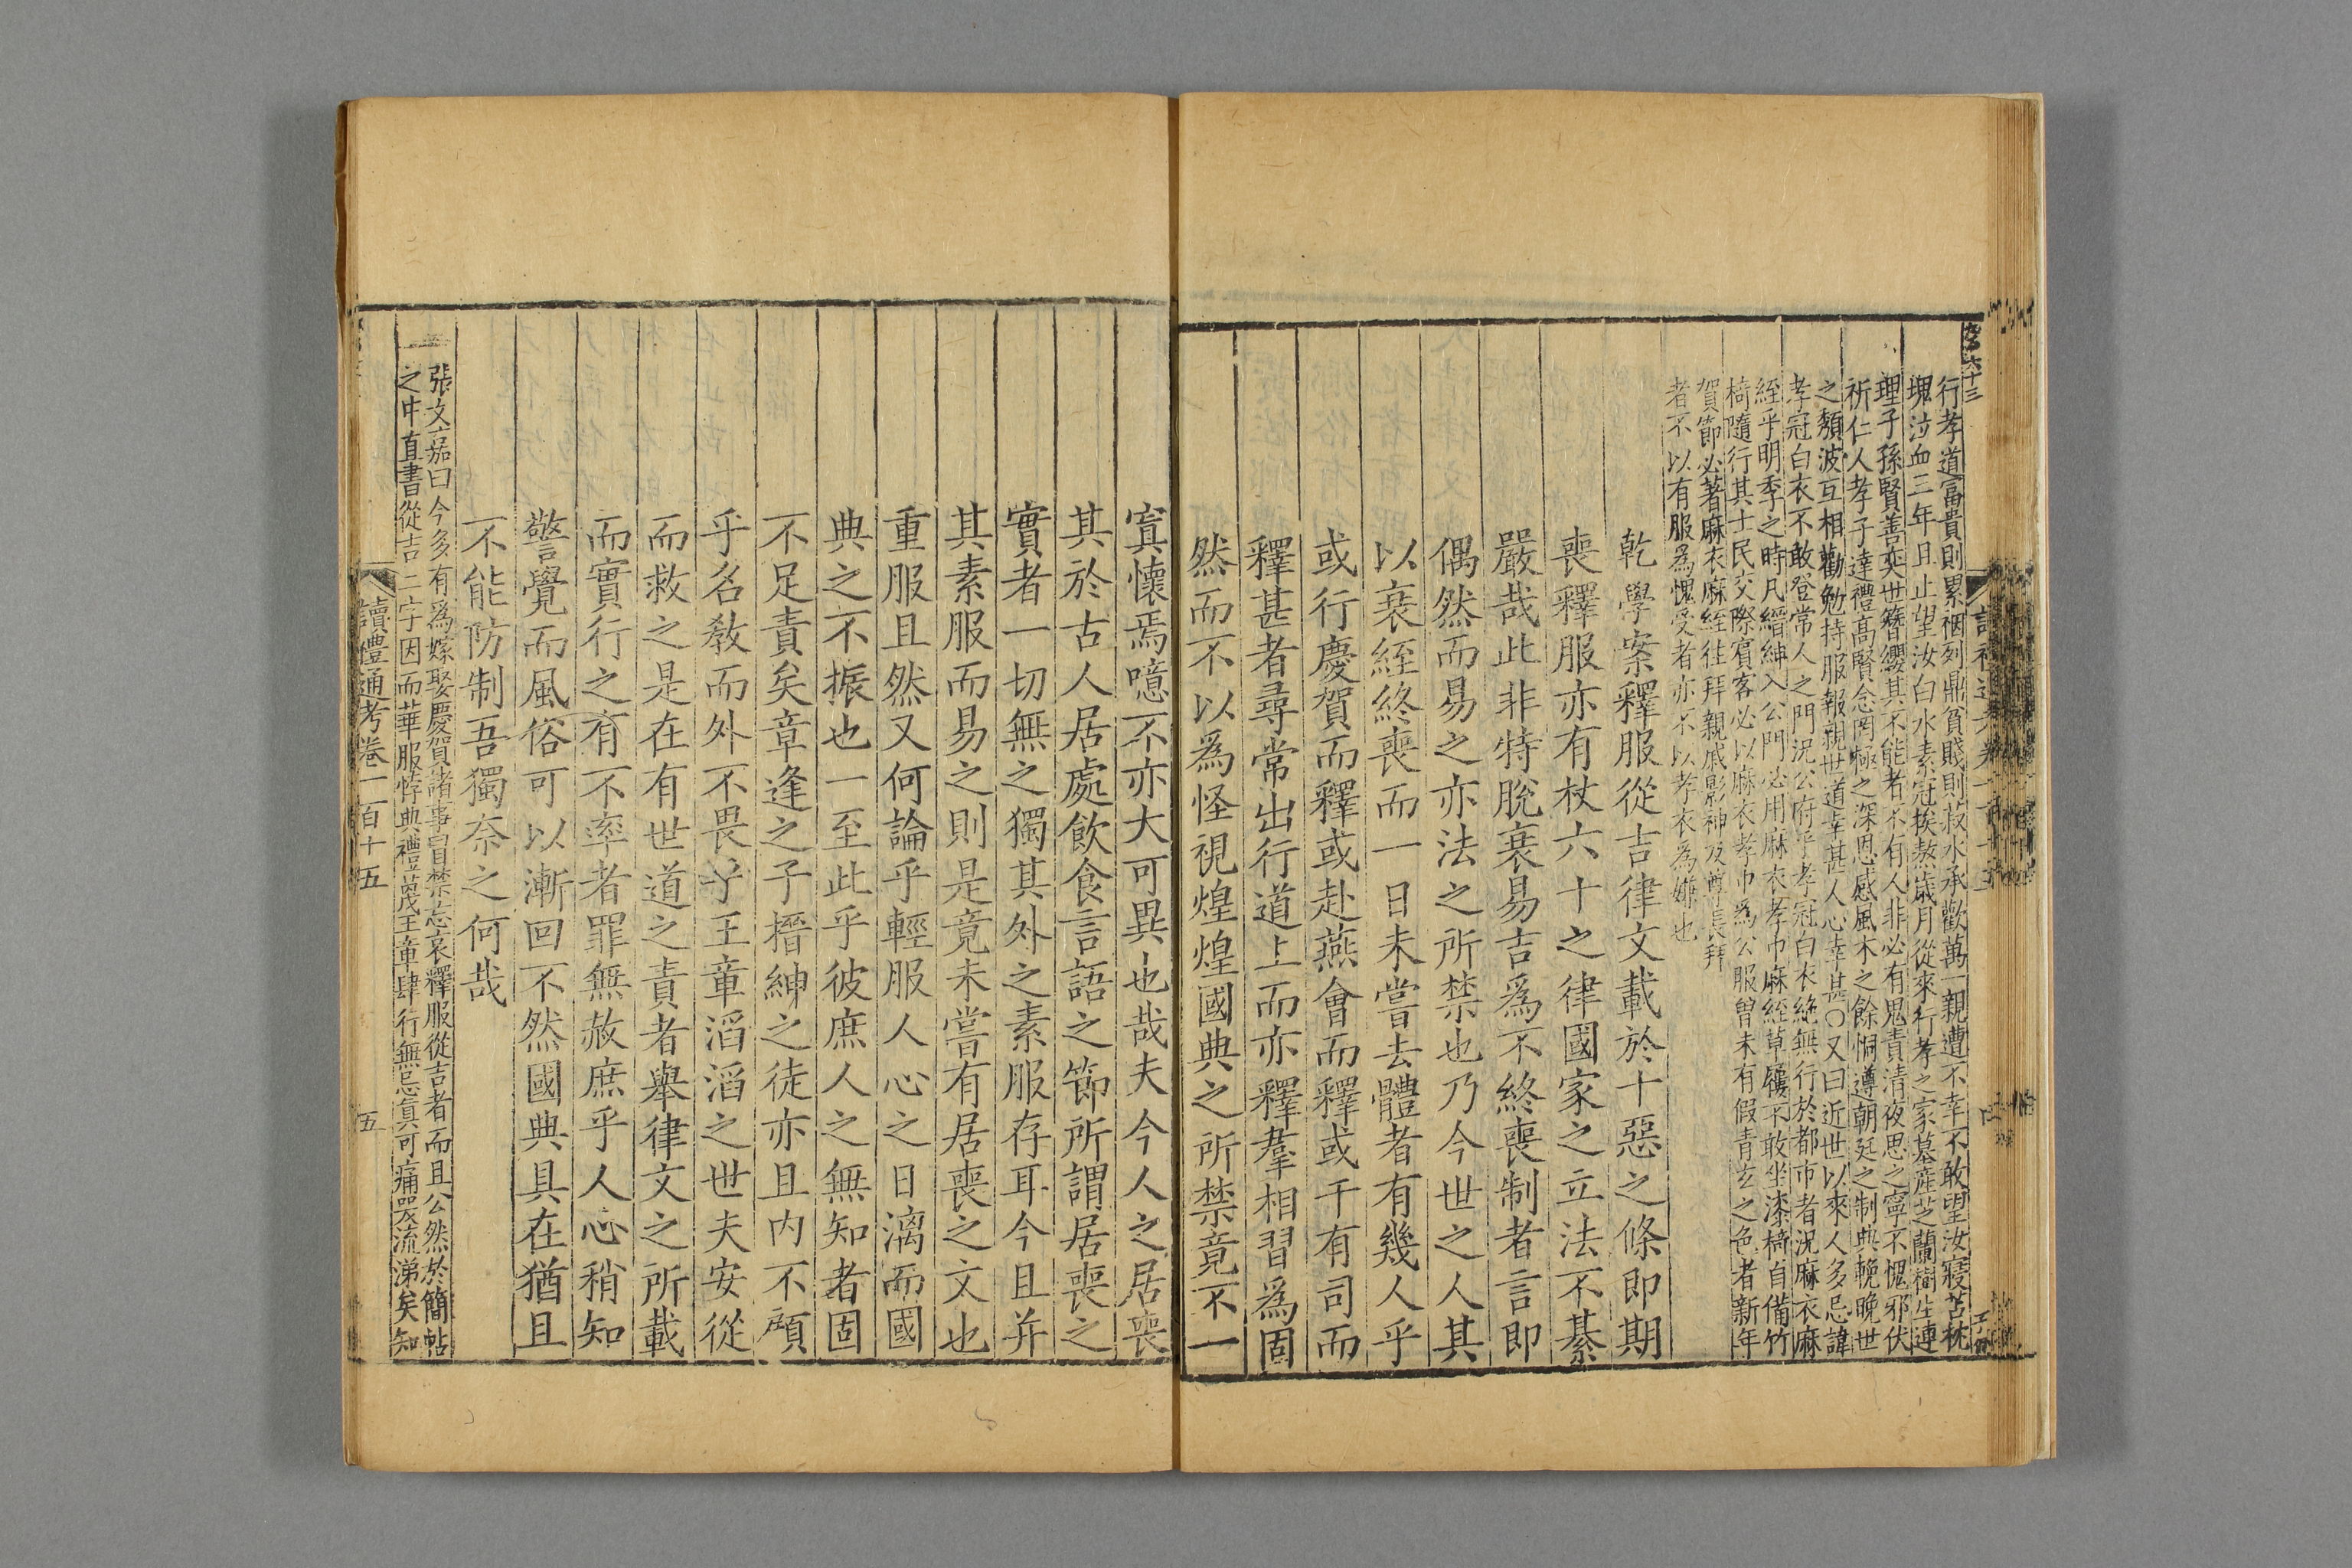 行孝道富貴則累裀列鼎貧賤則菽水承歡萬一親遭不幸不敢望汝寢苫枕
塊泣血三年且止望汝白水素冠挨熬歲月從來行孝之家墓産芝蘭樹生連
理子孫賢善奕世簪纓其不能者不有人非必有鬼責清夜思之寧不愧邪伏
祈仁人孝子達禮高賢念罔極之深恩感風木之餘悃遵朝廷之制典輓晚世
之頽波互相勸勉持服報親世道幸甚人心幸甚○又曰近世以來人多忌諱
孝冠白衣不敢登常人之門況公府乎孝冠白衣絶無行於都市者況麻衣麻
絰乎明季之時凡縉紳入公門必用麻衣孝巾麻絰草屨不敢坐漆椅自備竹
椅隨行其士民交際賓客必以麻衣孝巾爲公服曾未有假青玄之色者新年
賀節必著麻衣麻絰往拜親戚影神及尊長拜
者不以有服爲愧受者亦不以孝衣為嫌也
乾學案釋服從吉律文載於十惡之條即期
喪釋服亦有杖六十之律國家之立法不綦
嚴哉此非特脫衰易吉爲不終喪制者言即
偶然而易之亦法之所禁也乃今世之人其
以衰絰終喪而一日未嘗去體者有幾人乎
或行慶賀而釋或赴燕會而釋或干有司而
釋甚者尋常出行道上而亦釋羣相習爲固
然而不以爲怪視煌煌國典之所禁竟不一
寘懷焉噫不亦大可異也哉夫今人之居喪
其於古人居處飲食言語之節所謂居喪之
實者一切無之獨其外之素服存耳今且并
其素服而易之則是竟未嘗有居喪之文也
重服且然又何論乎輕服人心之日漓而國
典之不振也一至此乎彼庶人之無知者固
不足責矣章逢之子搢紳之徒亦且内不顧
乎名教而外不畏乎王章滔滔之世夫安從
而救之是在有世道之責者舉律文之所載
而實行之有不率者罪無赦庶乎人心稍知
警覺而風俗可以漸回不然國典具在猶且
不能防制吾獨奈之何哉
張文嘉曰今多有爲嫁娶慶賀諸事冒禁忘哀釋服從吉者而且公然於簡帖
之中直書從吉二字因而華服悖典禮蔑王章肆行無忌眞可痛哭流涕矣知
讀禮通考卷一百十五
五